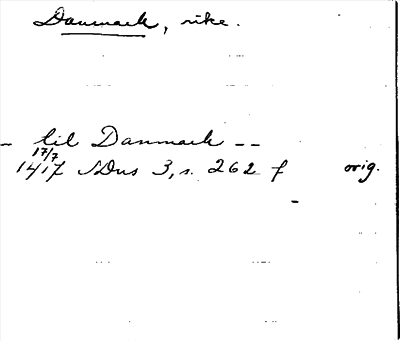 Danmark, rike.
- til Danmark --
17/7
1417 SDns 3, s. 262 f orig.
-